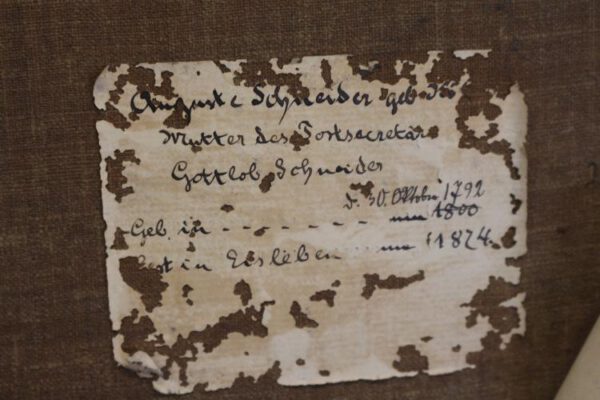 Auguste Schneider geb.
Mutter des Forstsecretär
Gottlob Schneider
d. 30. Oktober 1792
Geb. in - - - - - - - um 1800
Gest in Eisleben um 1874.